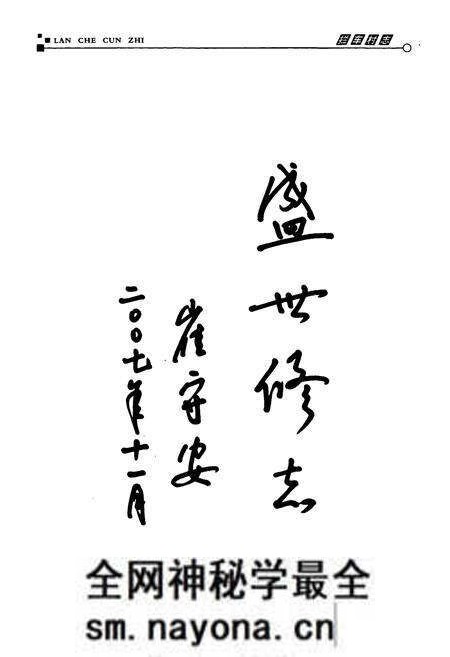 LAN CHE CUN ZHI
拦车村志
盛世修志
崔守安
二〇〇七年十一月
全网神秘学最全
sm.nayona.cn